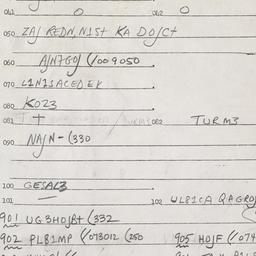 041 O 042 O
050 ZAJ REDN,N1ST KA DOJCT
060 AJN7GOJ (/009050
070 L1N1SACEDEK
080 KO23
081 T 082 TURM3
090 NAJN-(330
100 GESAL3
101 102 WL81CA QAGROJ
901 UG3HOJB+ (332
902 PL81MP (/073012 (250 905 HOJF (/074